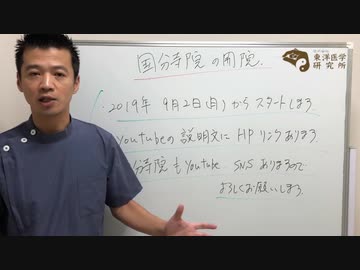 国分寺院の開院.
株式会社
東洋医学
研究所
2019年 9月2日(月)からスタートします
Youtubeの説明文にHPリンクあります
分寺院もYoutube SNSありますので
よろしくお願いします.